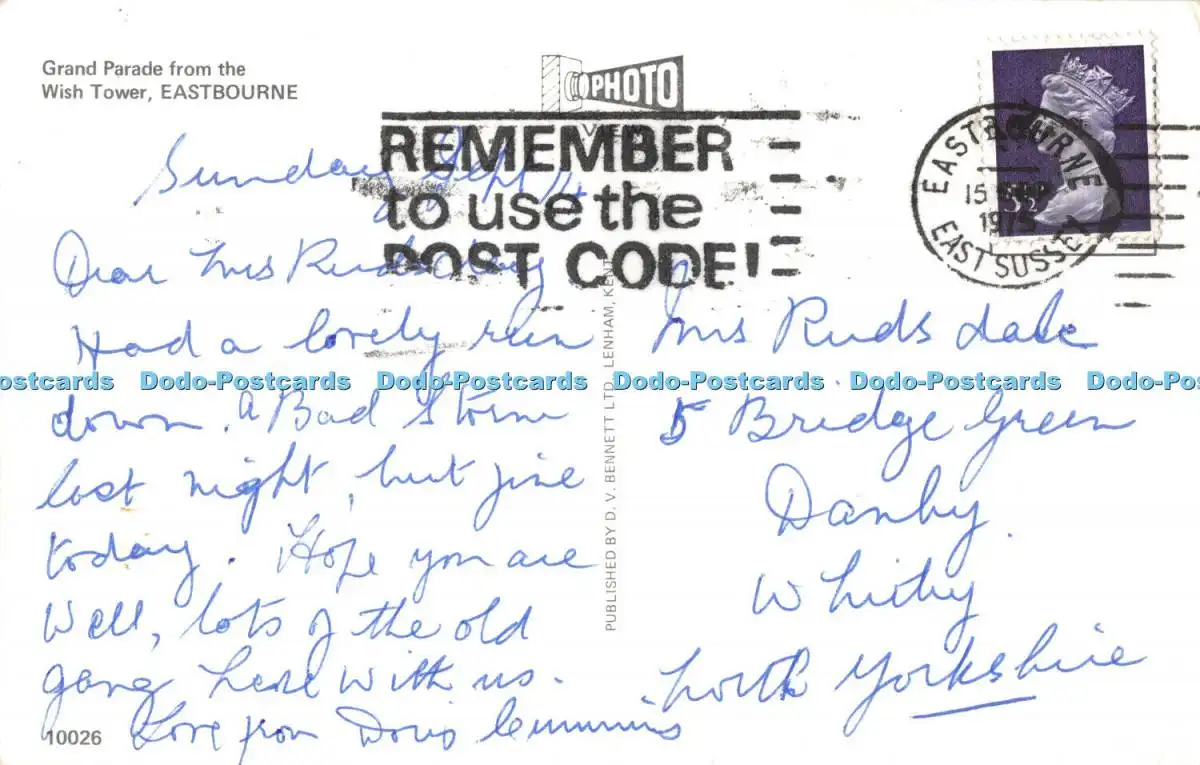 Grand Parade from the
Wish Tower, EASTBOURNE
PHOTO
VIEW
REMEMBER
to use the
POST CODE!
EASTBOURNE
15
1975
EAST SUSSEX
3½
Sunday Sept 14
Dear Mrs Rudsdale
Had a lovely run
down. A Bad Storm
last night, but fine
today. Hope you are
Well, lots of the old
gang here with us.
Love from Doris Cummins
10026
PUBLISHED BY D. V. BENNETT LTD. LENHAM, KENT
Mrs Rudsdale
5 Bridge Green
Danby
Whitby
North Yorkshire
ostcards Dodo-Postcards Dodo-Postcards Dodo-Postcards Dodo-Postcards Dodo-Pos